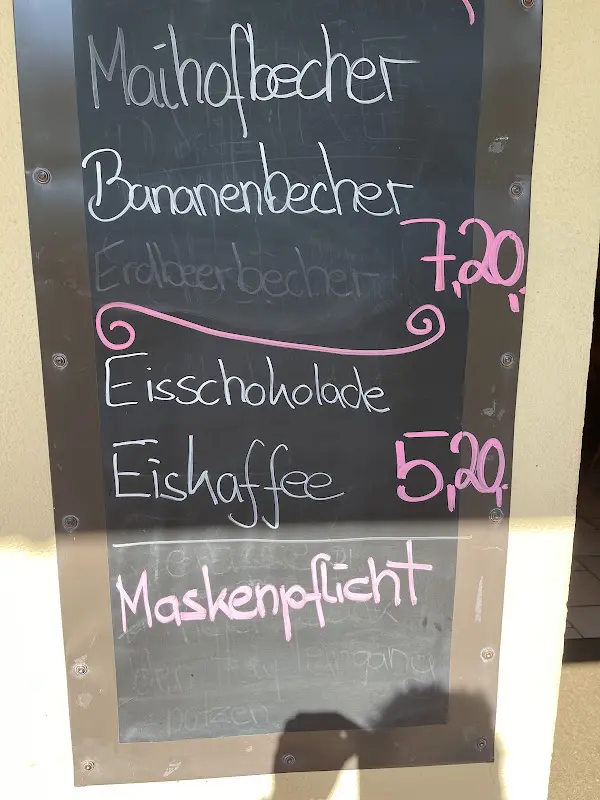 Maihofbecher
Bananenbecher
Erdbeerbecher 7,20
Eisschokolade
Eiskaffee 5,20
Maskenpflicht
eingang